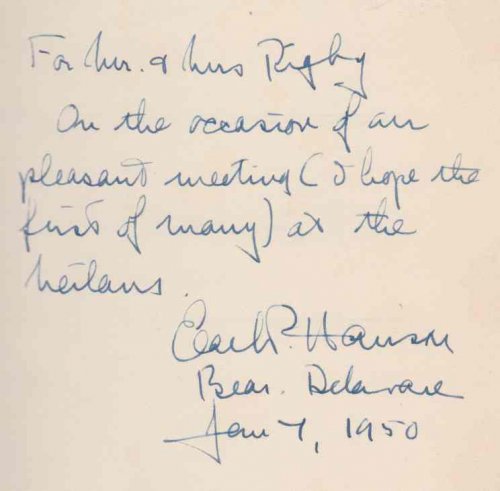 For Mr. & Mrs Rigby
On the occasion of our
pleasant meeting (I hope the
first of many) at the
Neilans.
Earl P. Hanson
Bear. Delaware
Jan 7, 1950